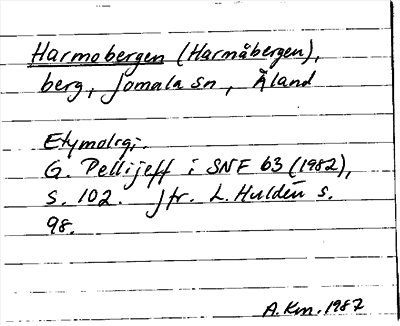 Harmobergen (Harmåbergen),
berg, Jomala sn, Åland
Etymologi.
G. Pellijeff i SNF 63 (1982),
s. 102. Jfr. L. Huldén s.
98.
A.Km. 1987